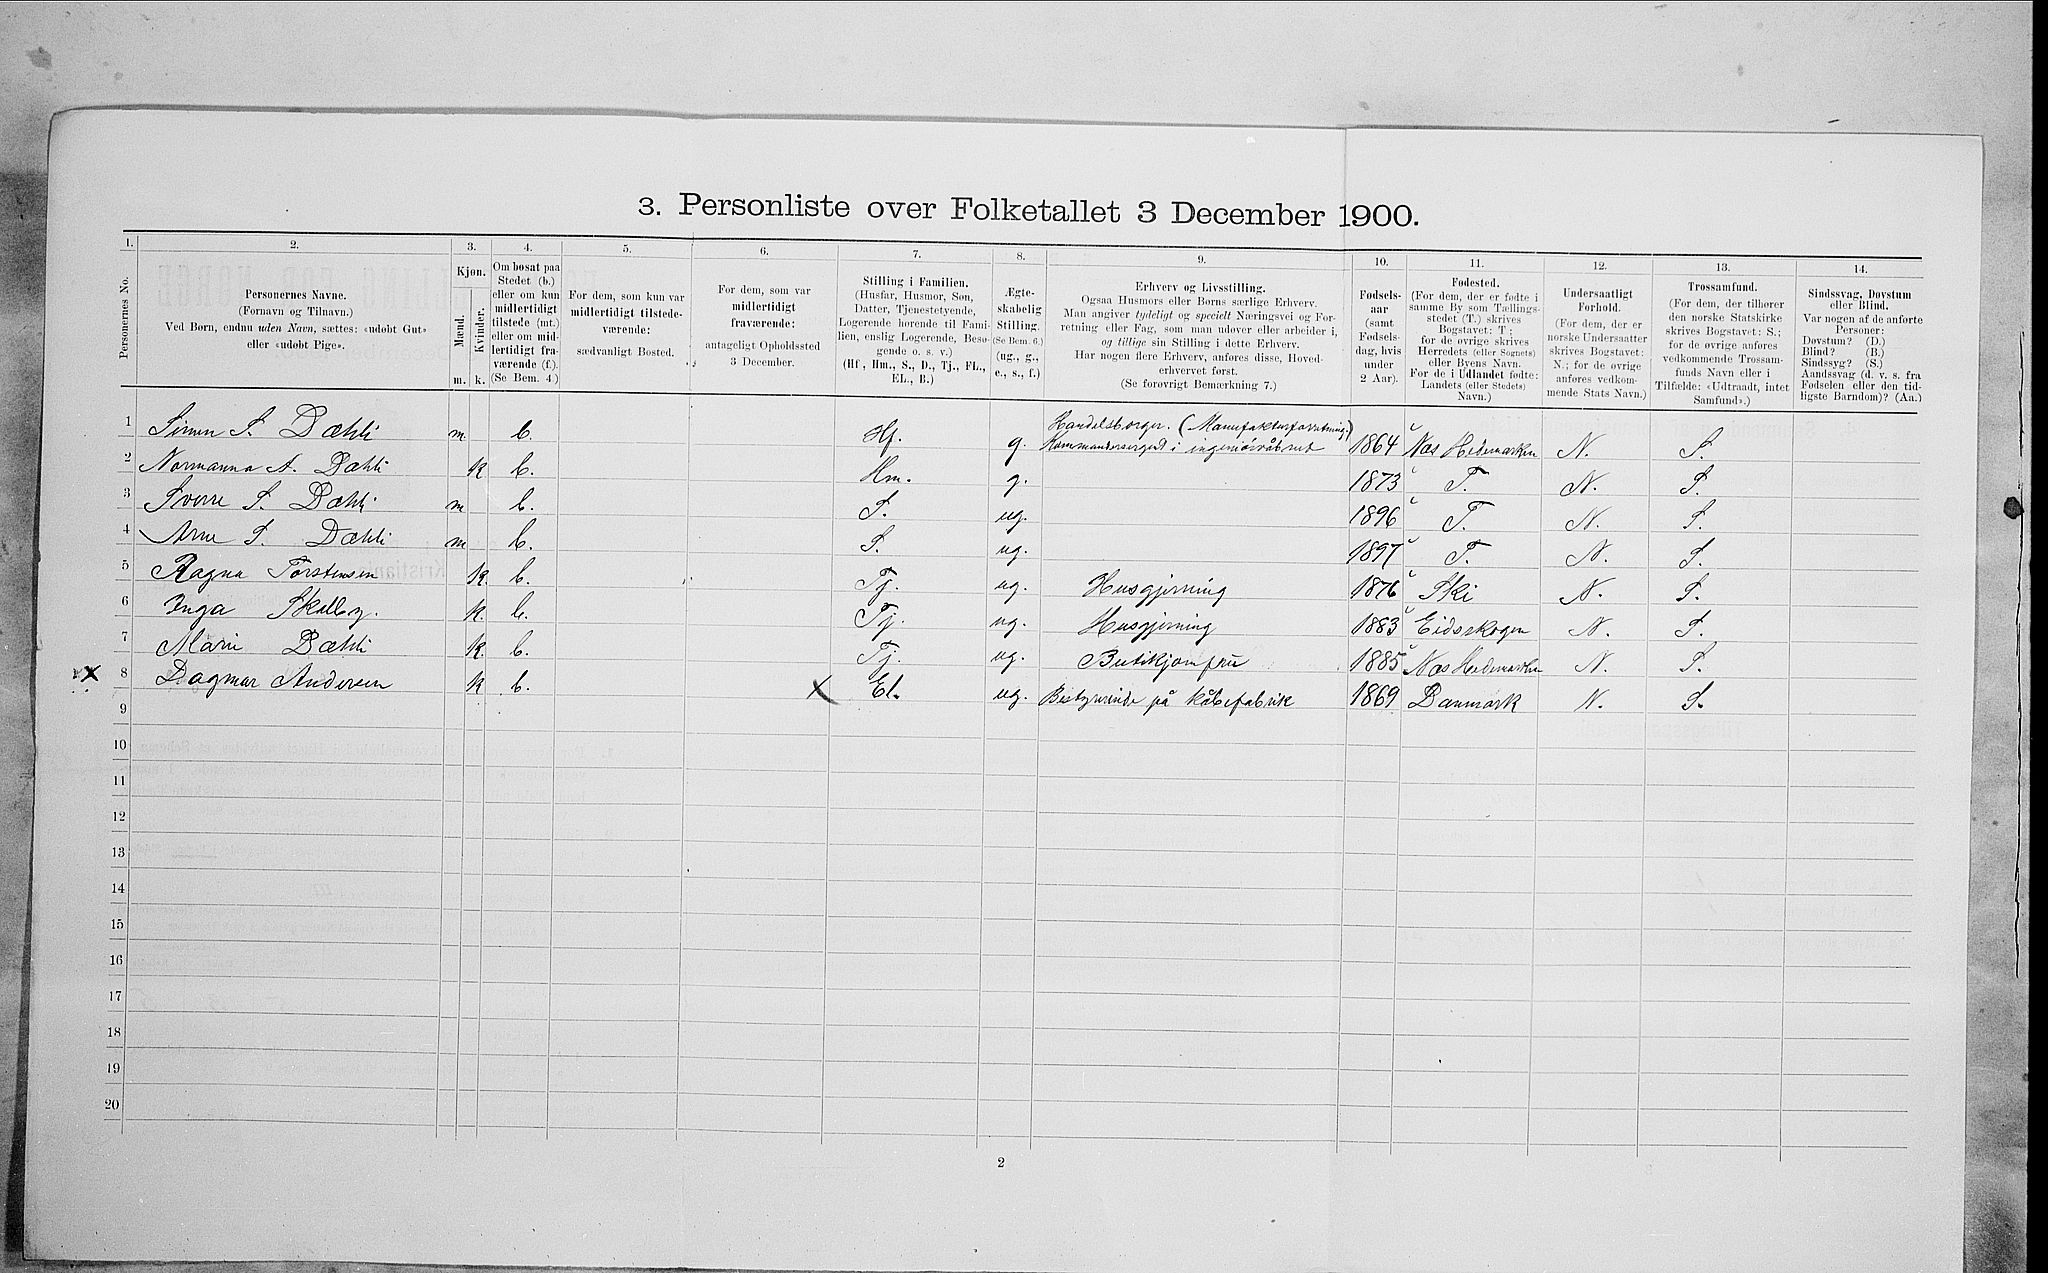 3. Personliste over Folketallet 3 December 1900.
1. 2. 3. 4. 5. 6. 7. 8. 9. 10. 11. 12. 13. 14.
Personernes No.
Personernes Navne.
(Fornavn og Tilnavn.)
Ved Børn, endnu uden Navn, sættes: «udøbt Gut»
eller «udøbt Pige».
Kjøn.
Mænd.
Kvinder.
m. k.
Om bosat paa
Stedet (b.)
eller om kun
midlertidigt
tilstede (mt.)
eller om mid-
lertidigt fra-
værende (f.).
(Se Bem. 4.)
For dem, som kun var
midlertidigt tilstede-
værende:
sædvanligt Bosted.
For dem, som var
midlertidigt
fraværende:
antageligt Opholdssted
3 December.
Stilling i Familien.
(Husfar, Husmor, Søn,
Datter, Tjenestetyende,
Logerende hørende til Fami-
lien, enslig Logerende, Besø-
gende o. s. v.)
(Hf., Hm., S., D., Tj., FL.,
EL., B.)
Ægte-
skabelig
Stilling.
(Se Bem. 6.)
(ug., g.,
e., s., f.)
Erhverv og Livsstilling.
Ogsaa Husmors eller Børns særlige Erhverv.
Man angiver tydeligt og specielt Næringsvei og For-
retning eller Fag, som man udøver eller arbeider i,
og tillige sin Stilling i dette Erhverv.
Har nogen flere Erhverv, anføres disse, Hoved-
erhvervet først.
(Se forøvrigt Bemærkning 7.)
Fødsels-
aar
(samt
Fødsels-
dag, hvis
under
2 Aar).
Fødested.
(For dem, der er fødte i
samme By som Tællings-
stedet (T.) skrives
Bogstavet: T;
for de øvrige skrives
Herredets (eller Sognets)
eller Byens Navn.
For de i Udlandet fødte:
Landets (eller Stedets)
Navn.)
Undersaatligt
Forhold.
(For dem, der er
norske Undersaatter
skrives Bogstavet:
N.; for de øvrige
anføres vedkom-
mende Stats Navn.)
Trossamfund.
(For dem, der tilhører
den norske Statskirke
skrives Bogstavet: S.;
for de øvrige anføres
vedkommende Trossam-
funds Navn eller i
Tilfælde: «Udtraadt, intet
Samfund».)
Sindssvag, Døvstum
eller Blind.
Var nogen af de anførte
Personer:
Døvstum? (D.)
Blind? (B.)
Sindssyg? (S.)
Aandssvag (d. v. s. fra
Fødselen eller den tid-
ligste Barndom)? (Aa.)
1 Simen S. Dæhli m. b. Hf. g. Handelsborger. (Manufakturforretning.) Kommandersergent i ingeniörvåbnet 1864 Næs Hedemarken N. S.
2 Normanna A. Dæhli k b. Hm. g. 1873 T. N. S.
3 Sverre S. Dæhli m b. S. ug. 1896 T. N. S.
4 Arne S. Dæhli m b. S. ug. 1897 T. N. S.
5 Ragna Torstensen k. b. Tj. ug. Husgjerning 1876 Ski N. S.
6 Inga Skolby. k. b. Tj. ug. Husgjerning 1883 Eidsskogen N. S.
7 Marie Dæhli k. b. Tj. ug. Butikjomfru 1885 Næs Hedemarken N. S.
X 8 Dagmar Andersen k b. X El. ug. Bestyrerinde på kåbefabrik 1869 Danmark N. S.
9
10
11
12
13
14
15
16
17
18
19
20
2